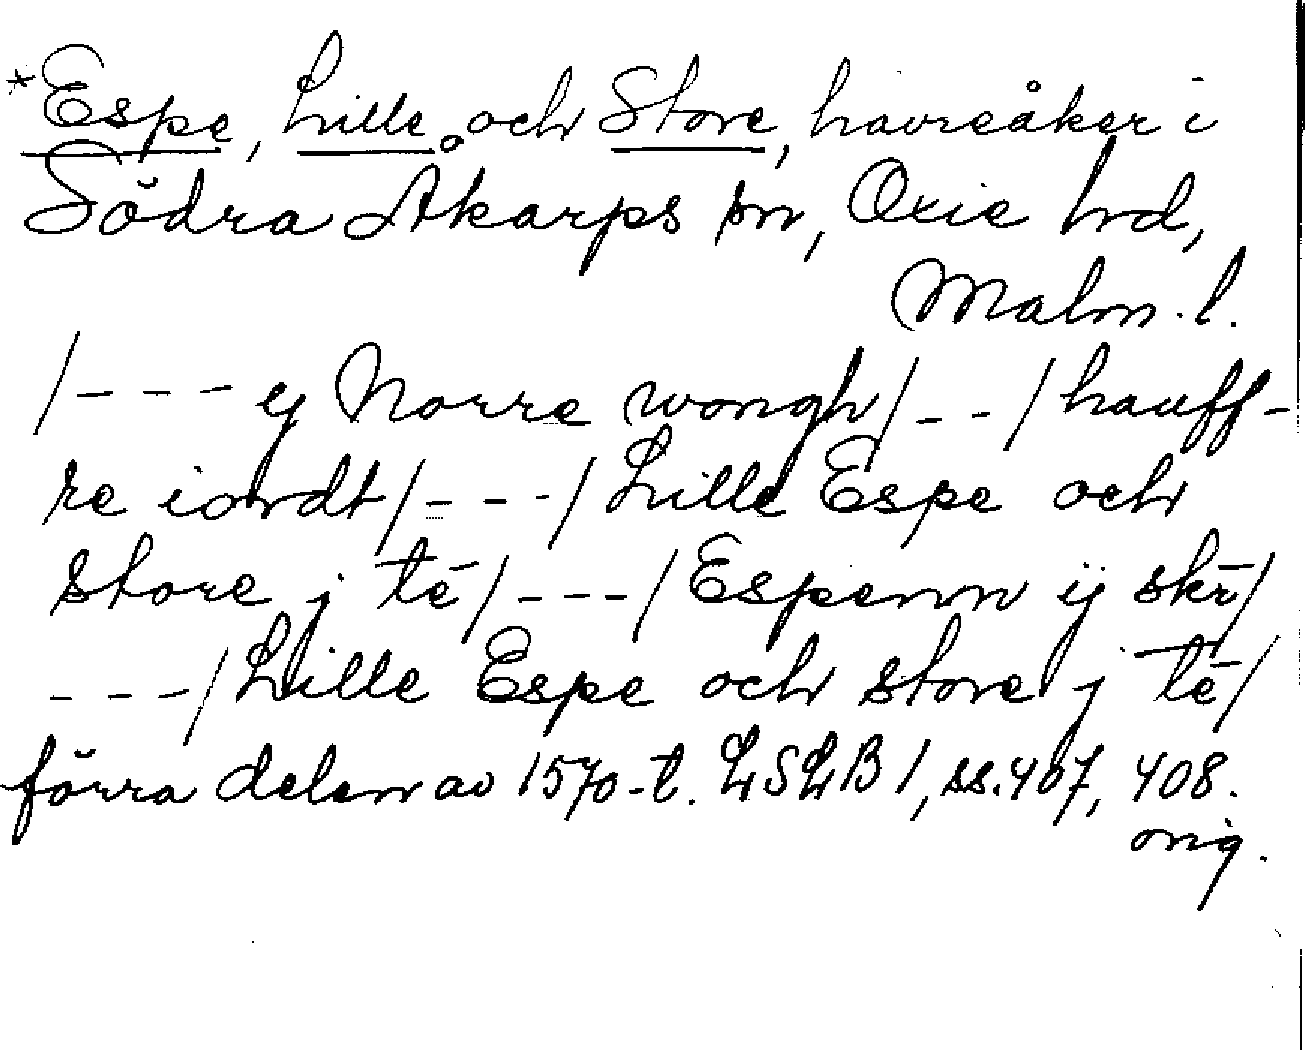 *Espe, Lille och Store, havreåker i
Södra Åkarps sn, Oxie hrd,
Malm. l.
/--- ij Norre wongh/--/hauff-
re iordt/---/Lille Espe och
store j tē/---/Espenn ij skr̄/
---/Lille Espe och store j tē/
förra delen av 1570-t. LSLB 1, ss. 407, 408.
orig.